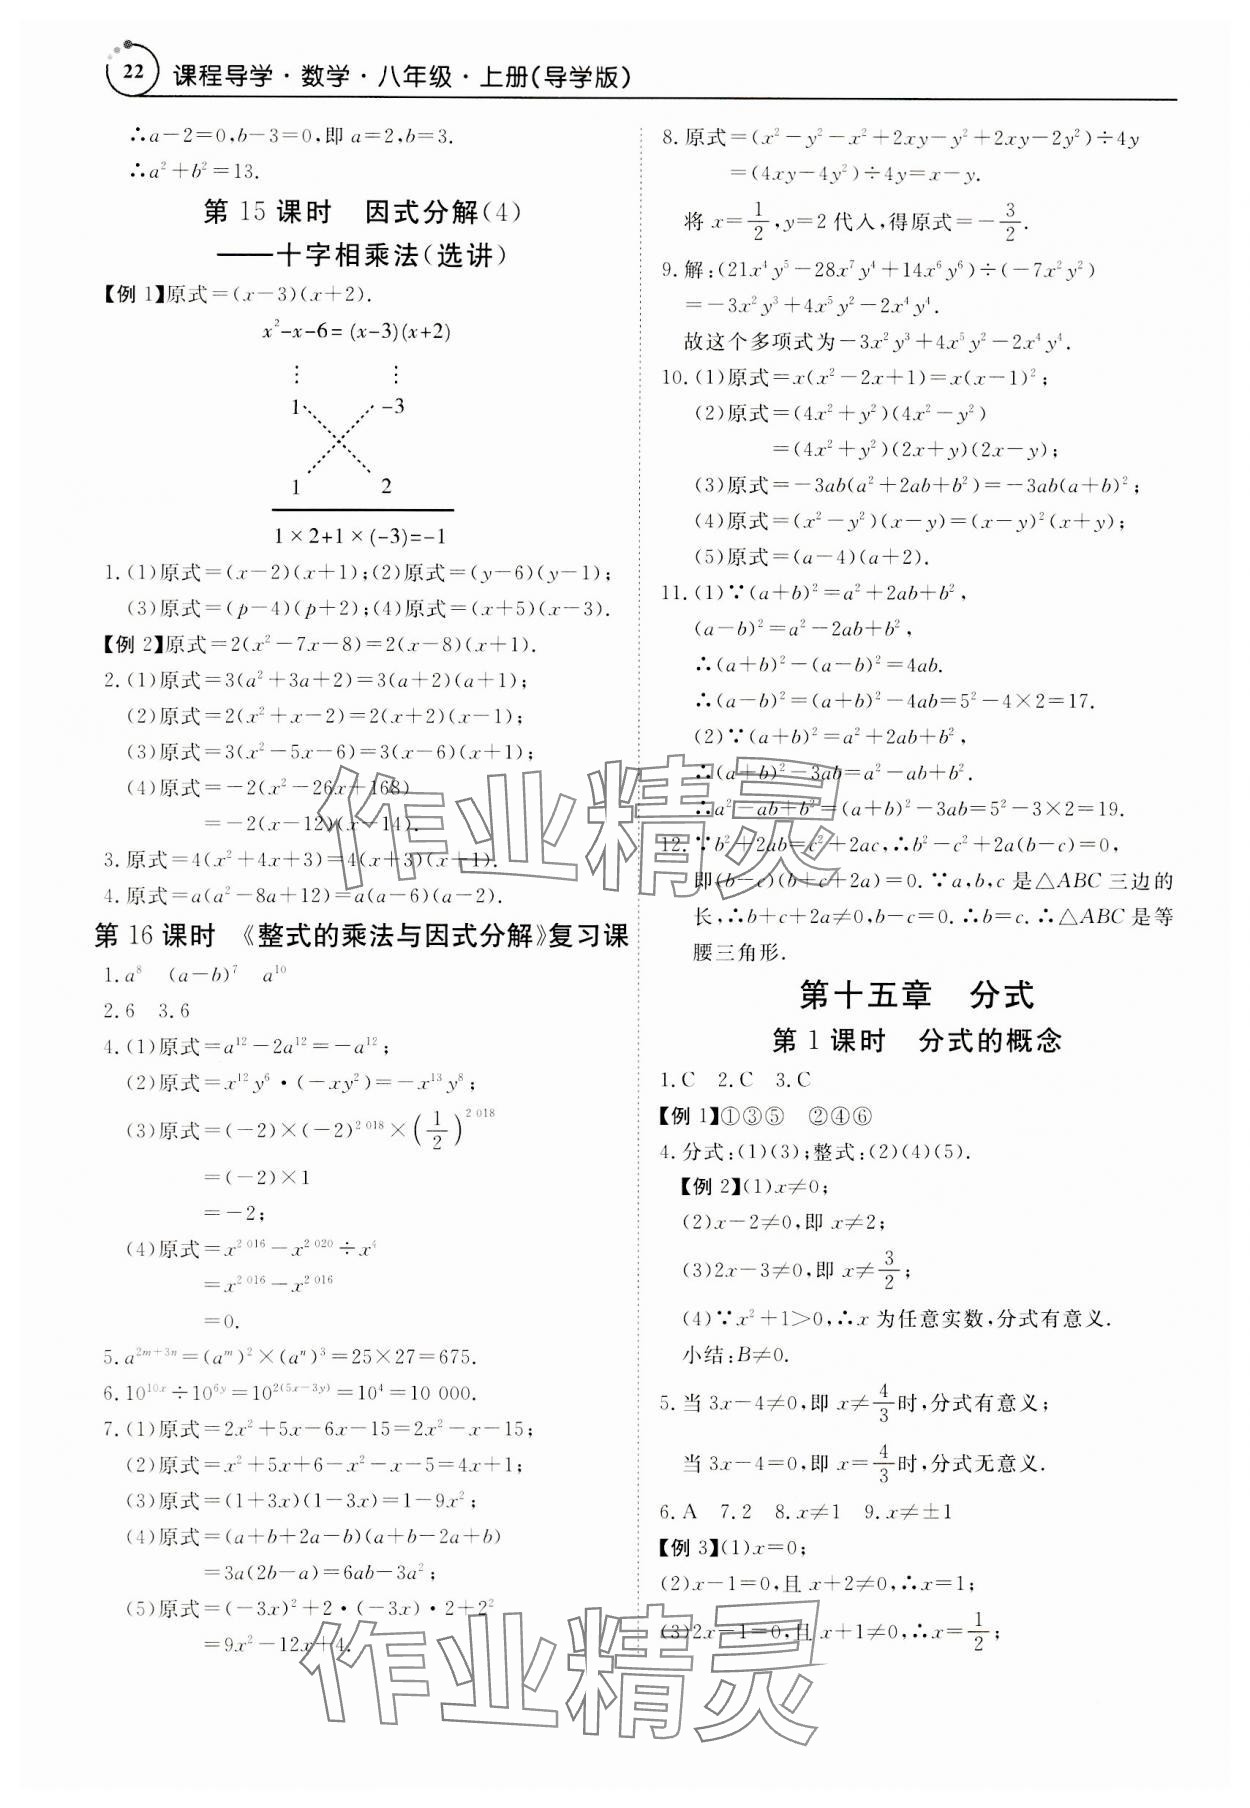 22 课程导学·数学·八年级·上册(导学版)
∴a-2=0,b-3=0,即 a=2,b=3.
∴a²+b²=13.
第 15 课时 因式分解(4)
——十字相乘法(选讲)
【例 1】原式=(x-3)(x+2).
x²-x-6=(x-3)(x+2)
⋮ ⋮
1 -3
1 2
1×2+1×(-3)=-1
1.(1)原式=(x-2)(x+1);(2)原式=(y-6)(y-1);
(3)原式=(p-4)(p+2);(4)原式=(x+5)(x-3).
【例 2】原式=2(x²-7x-8)=2(x-8)(x+1).
2.(1)原式=3(a²+3a+2)=3(a+2)(a+1);
(2)原式=2(x²+x-2)=2(x+2)(x-1);
(3)原式=3(x²-5x-6)=3(x-6)(x+1);
(4)原式=-2(x²-26x+168)
=-2(x-12)(x-14).
3.原式=4(x²+4x+3)=4(x+3)(x+1).
4.原式=a(a²-8a+12)=a(a-6)(a-2).
第 16 课时 《整式的乘法与因式分解》复习课
1.a⁸ (a-b)⁷ a¹⁰
2.6 3.6
4.(1)原式=a¹²-2a¹²=-a¹²;
(2)原式=x¹²y⁶·(-xy²)=-x¹³y⁸;
(3)原式=(-2)×(-2)²⁰¹⁸×(1/2)²⁰¹⁸
=(-2)×1
=-2;
(4)原式=x²⁰¹⁶-x²⁰²⁰÷x⁴
=x²⁰¹⁶-x²⁰¹⁶
=0.
5.a²ᵐ⁺³ⁿ=(aᵐ)²×(aⁿ)³=25×27=675.
6.10^(10x)÷10^(6y)=10^(2(5x-3y))=10⁴=10 000.
7.(1)原式=2x²+5x-6x-15=2x²-x-15;
(2)原式=x²+5x+6-x²-x-5=4x+1;
(3)原式=(1+3x)(1-3x)=1-9x²;
(4)原式=(a+b+2a-b)(a+b-2a+b)
=3a(2b-a)=6ab-3a²;
(5)原式=(-3x)²+2·(-3x)·2+2²
=9x²-12x+4.
8.原式=(x²-y²-x²+2xy-y²+2xy-2y²)÷4y
=(4xy-4y²)÷4y=x-y.
将 x=1/2,y=2 代入,得原式=-3/2.
9.解:(21x⁴y⁵-28x⁷y⁴+14x⁶y⁶)÷(-7x²y²)
=-3x²y³+4x⁵y²-2x⁴y⁴.
故这个多项式为-3x²y³+4x⁵y²-2x⁴y⁴.
10.(1)原式=x(x²-2x+1)=x(x-1)²;
(2)原式=(4x²+y²)(4x²-y²)
=(4x²+y²)(2x+y)(2x-y);
(3)原式=-3ab(a²+2ab+b²)=-3ab(a+b)²;
(4)原式=(x²-y²)(x-y)=(x-y)²(x+y);
(5)原式=(a-4)(a+2).
11.(1)∵(a+b)²=a²+2ab+b²,
(a-b)²=a²-2ab+b²,
∴(a+b)²-(a-b)²=4ab.
∴(a-b)²=(a+b)²-4ab=5²-4×2=17.
(2)∵(a+b)²=a²+2ab+b²,
∴(a+b)²-3ab=a²-ab+b².
∴a²-ab+b²=(a+b)²-3ab=5²-3×2=19.
12.∵b²+2ab=c²+2ac,∴b²-c²+2a(b-c)=0,
即(b-c)(b+c+2a)=0.∵a,b,c 是△ABC 三边的
长,∴b+c+2a≠0,b-c=0.∴b=c.∴△ABC 是等
腰三角形.
第十五章 分式
第 1 课时 分式的概念
1.C 2.C 3.C
【例 1】①③⑤ ②④⑥
4.分式:(1)(3);整式:(2)(4)(5).
【例 2】(1)x≠0;
(2)x-2≠0,即 x≠2;
(3)2x-3≠0,即 x≠3/2;
(4)∵x²+1>0,∴x 为任意实数,分式有意义.
小结:B≠0.
5.当 3x-4≠0,即 x≠4/3时,分式有意义;
当 3x-4=0,即 x=4/3时,分式无意义.
6.A 7.2 8.x≠1 9.x≠±1
【例 3】(1)x=0;
(2)x-1=0,且 x+2≠0,∴x=1;
(3)2x-1=0,且 x+1≠0,∴x=1/2;
作业精灵
作业精灵